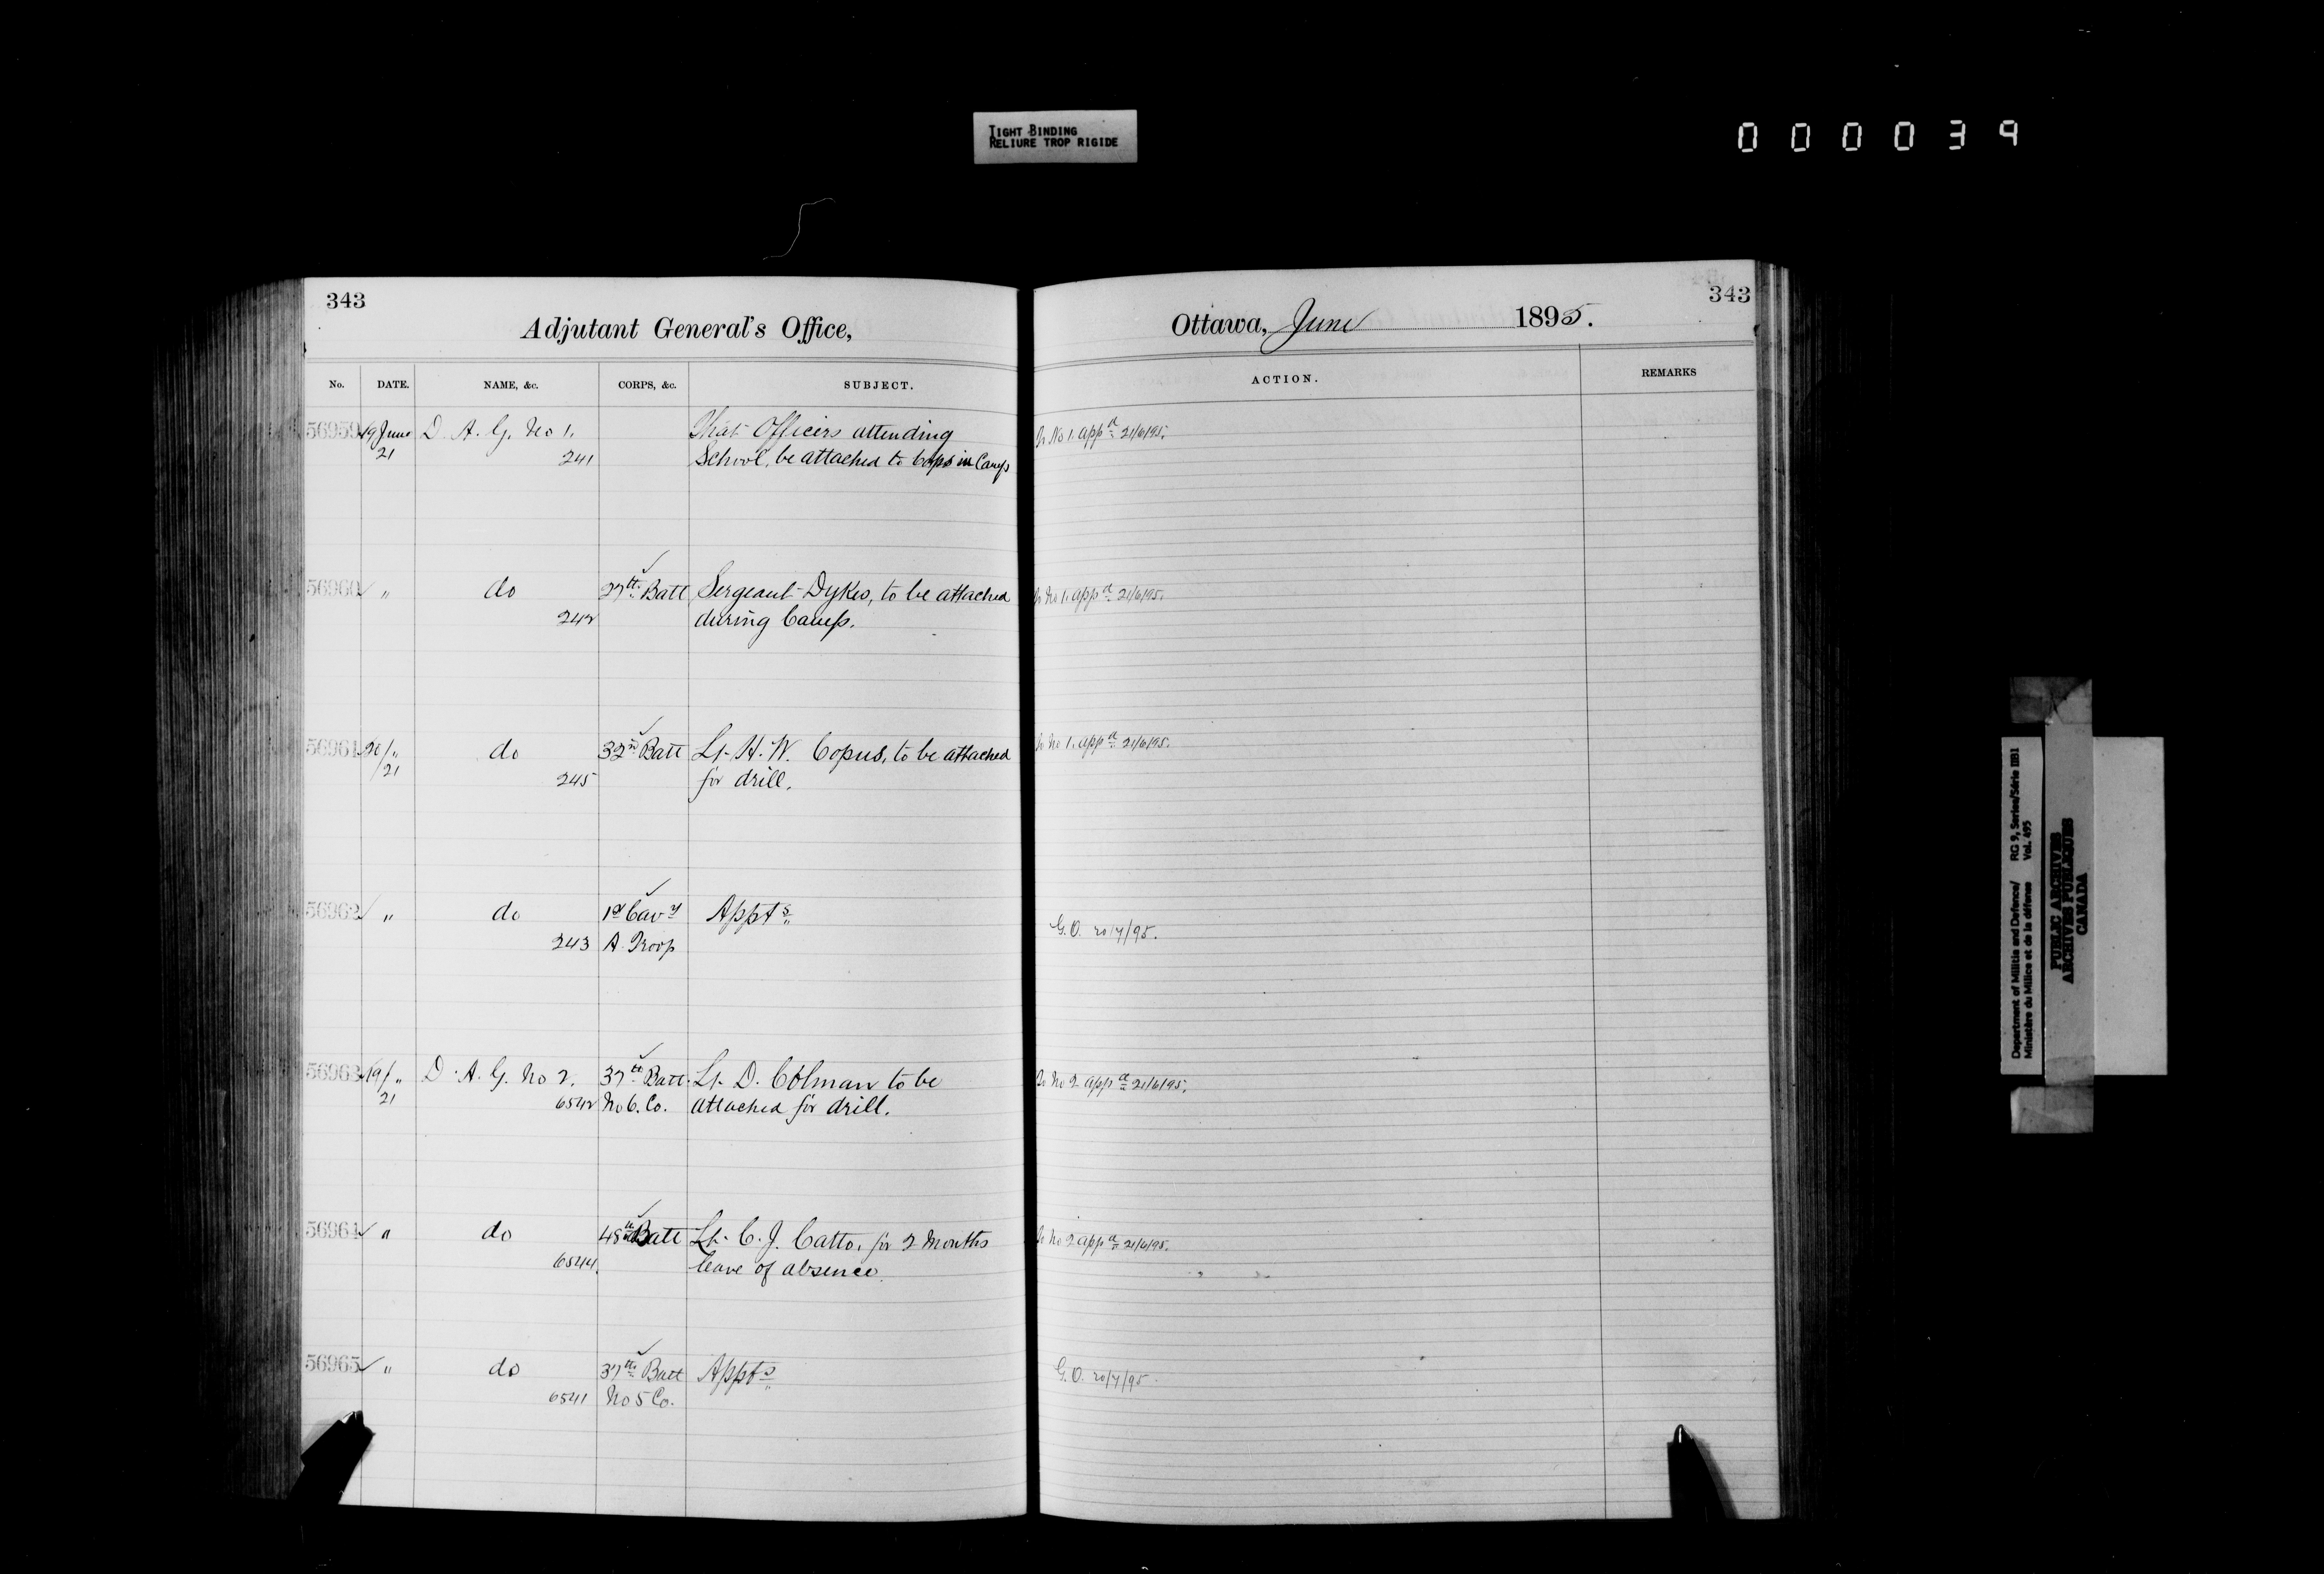 TIGHT BINDING
RELIURE TROP RIGIDE
000039
343
Adjutant General's Office,
No. DATE. NAME, &c. CORPS, &c. SUBJECT.
56959 19 June D. A. G. No 1. That Officers attending
21 241 School, be attached to Corps in Camp
56960 " do 27th Batt Sergeant Dykes, to be attached
242 during Camp.
56961 20/" do 32nd Batt Lt. H. W. Copus, to be attached
/21 245 for drill.
56962 " do 1st Cavy Appts
243 A. Troop
56963 19/" D. A. G. No 2. 37th Batt. Lt. D. Colman to be
21 6542 No 6. Co. attached for drill.
56964 " do 48th Batt Lt. C. J. Catto, for 2 Months
6544. leave of absence.
56965 " do 37th Batt Appts
6541 No 5 Co.
343
Ottawa, June 1895.
ACTION. REMARKS
To No 1. appd 21/6/95.
To No 1. appd 21/6/95.
To No 1. appd 21/6/95.
G.O. 20/7/95.
To No 2 appd 21/6/95.
To No 2 appd 21/6/95.
G.O. 20/7/95.
Department of Militia and Defence/ RG 9, Series/Série IIB1
Ministère du Milice et de la défense Vol. 495
PUBLIC ARCHIVES
ARCHIVES PUBLIQUES
CANADA